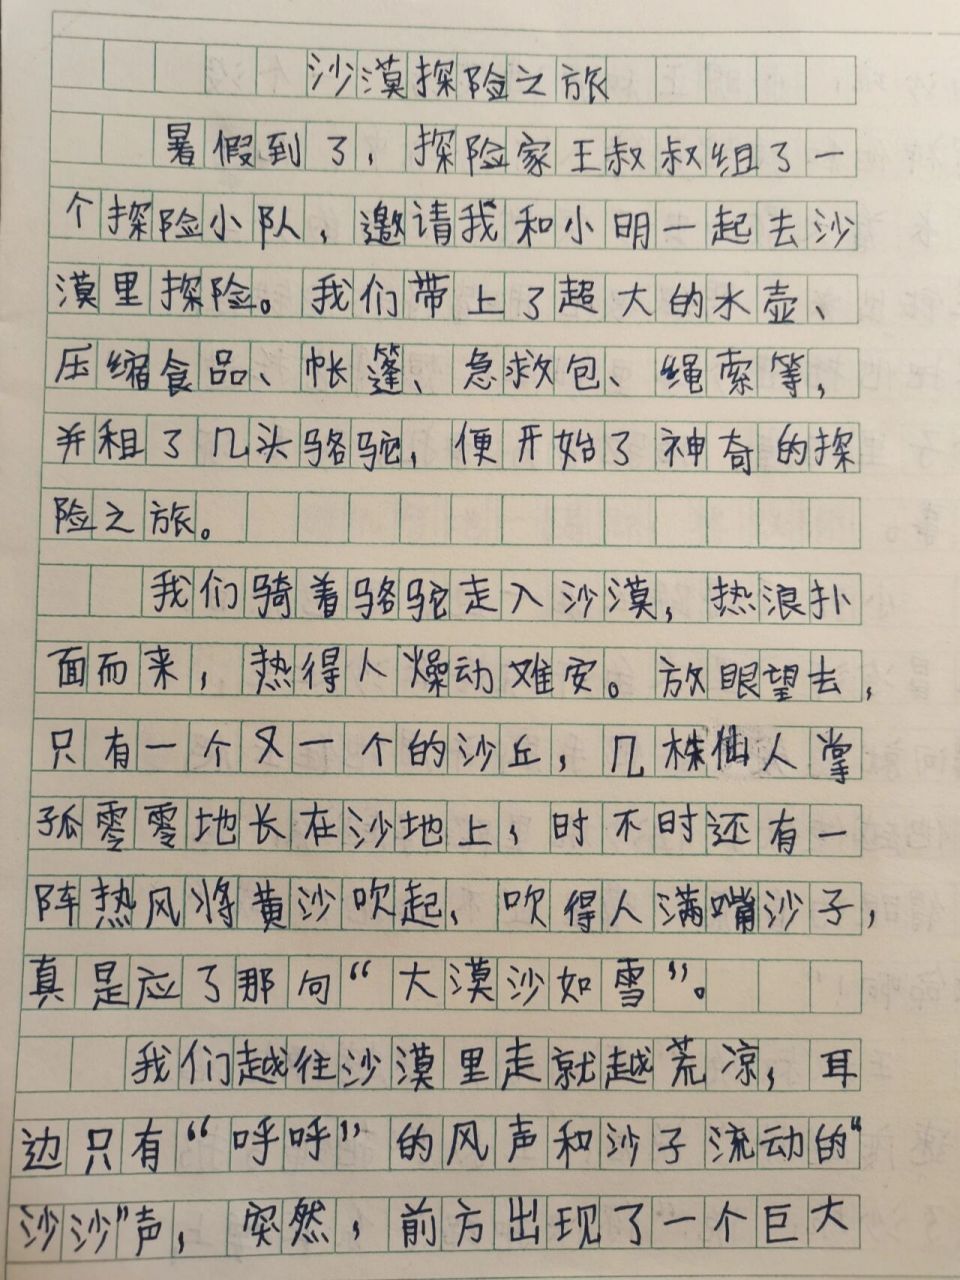 沙漠探险之旅
暑假到了，探险家王叔叔组了一
个探险小队，邀请我和小明一起去沙
漠里探险。我们带上了超大的水壶、
压缩食品、帐篷、急救包、绳索等，
并租了几头骆驼，便开始了神奇的探
险之旅。
我们骑着骆驼走入沙漠，热浪扑
面而来，热得人燥动难安。放眼望去，
只有一个又一个的沙丘，几株仙人掌
孤零零地长在沙地上，时不时还有一
阵热风将黄沙吹起、吹得人满嘴沙子，
真是应了那句“大漠沙如雪”。
我们越往沙漠里走就越荒凉，耳
边只有“呼呼”的风声和沙子流动的“
沙沙”声，突然，前方出现了一个巨大